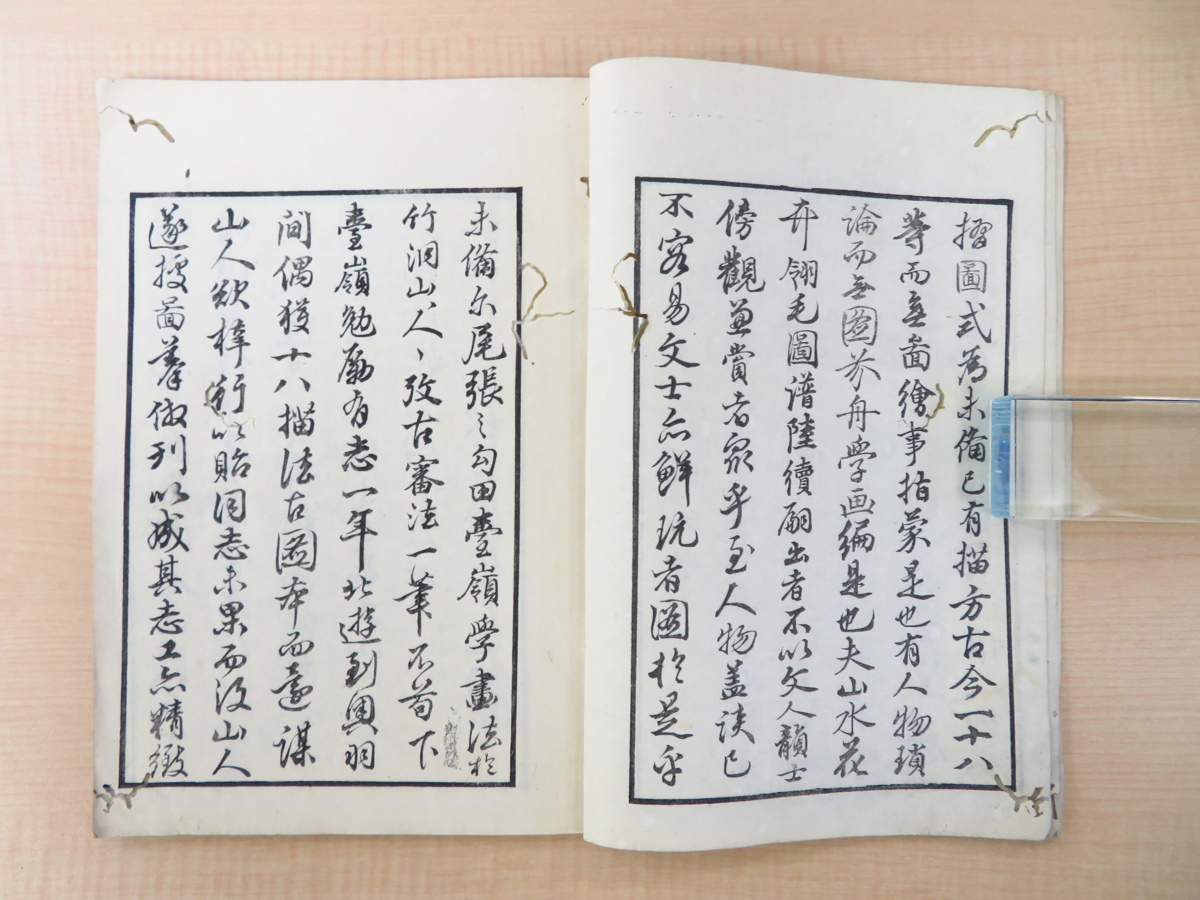 摺圖式為未備已有描方古今一十八
等而無啚繪事指蒙是也有人物瑣
論而無圖芥舟學画編是也夫山水花
卉翎毛圖譜陸續嗣出者不以文人韻士
傍觀兼賞者衆乎至人物盖誒已
不容易文士亦鮮玩者圖於是乎
未備尓尾張之勾田臺嶺學畫法於
竹洞山人〻攷古審法一筆不苟下
臺嶺勉勵有志一年北遊到奥羽
間偶獲十八描法古圖本而還謀
山人欲梓行以貽同志未果而沒山人
遂據啚摹倣刊以成其志工亦精緻